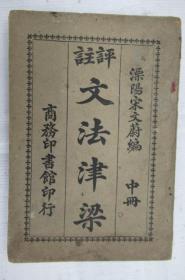 溧陽宋文蔚編
中冊
評註
文法津梁
商務印書館印行